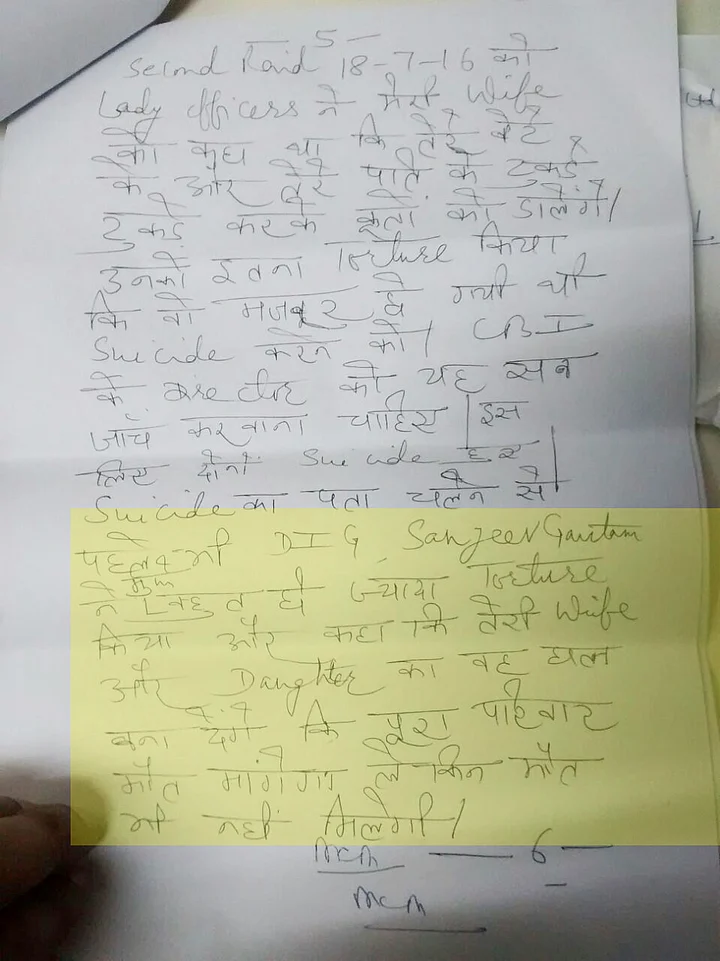 — 5 —
Second Raid 18-7-16 को
Lady officers ने मेरी Wife
को कहा था कि तेरे बेटे
के और तेरे पति के टुकडे
टुकडे करके कूतो को डालेंगे।
उनको इतना Torture किया
कि वो मजबूर हो गयी थी
Suicide करने को। CBI
के Director को यह सब
जाँच करवाना चाहिए। इस
लिए दोनो Suicide हुए।
Suicide का पता चलने से
पहले भी DIG Sanjeev Gautam
ने मुझे बहुत ही ज्यादा Torture
किया और कहा कि तेरी Wife
और Daughter का वह हाल
बना देंगे कि पूरा परिवार
मौत मांगेगा लेकिन मौत
भी नहीं मिलेगी।
— 6 —